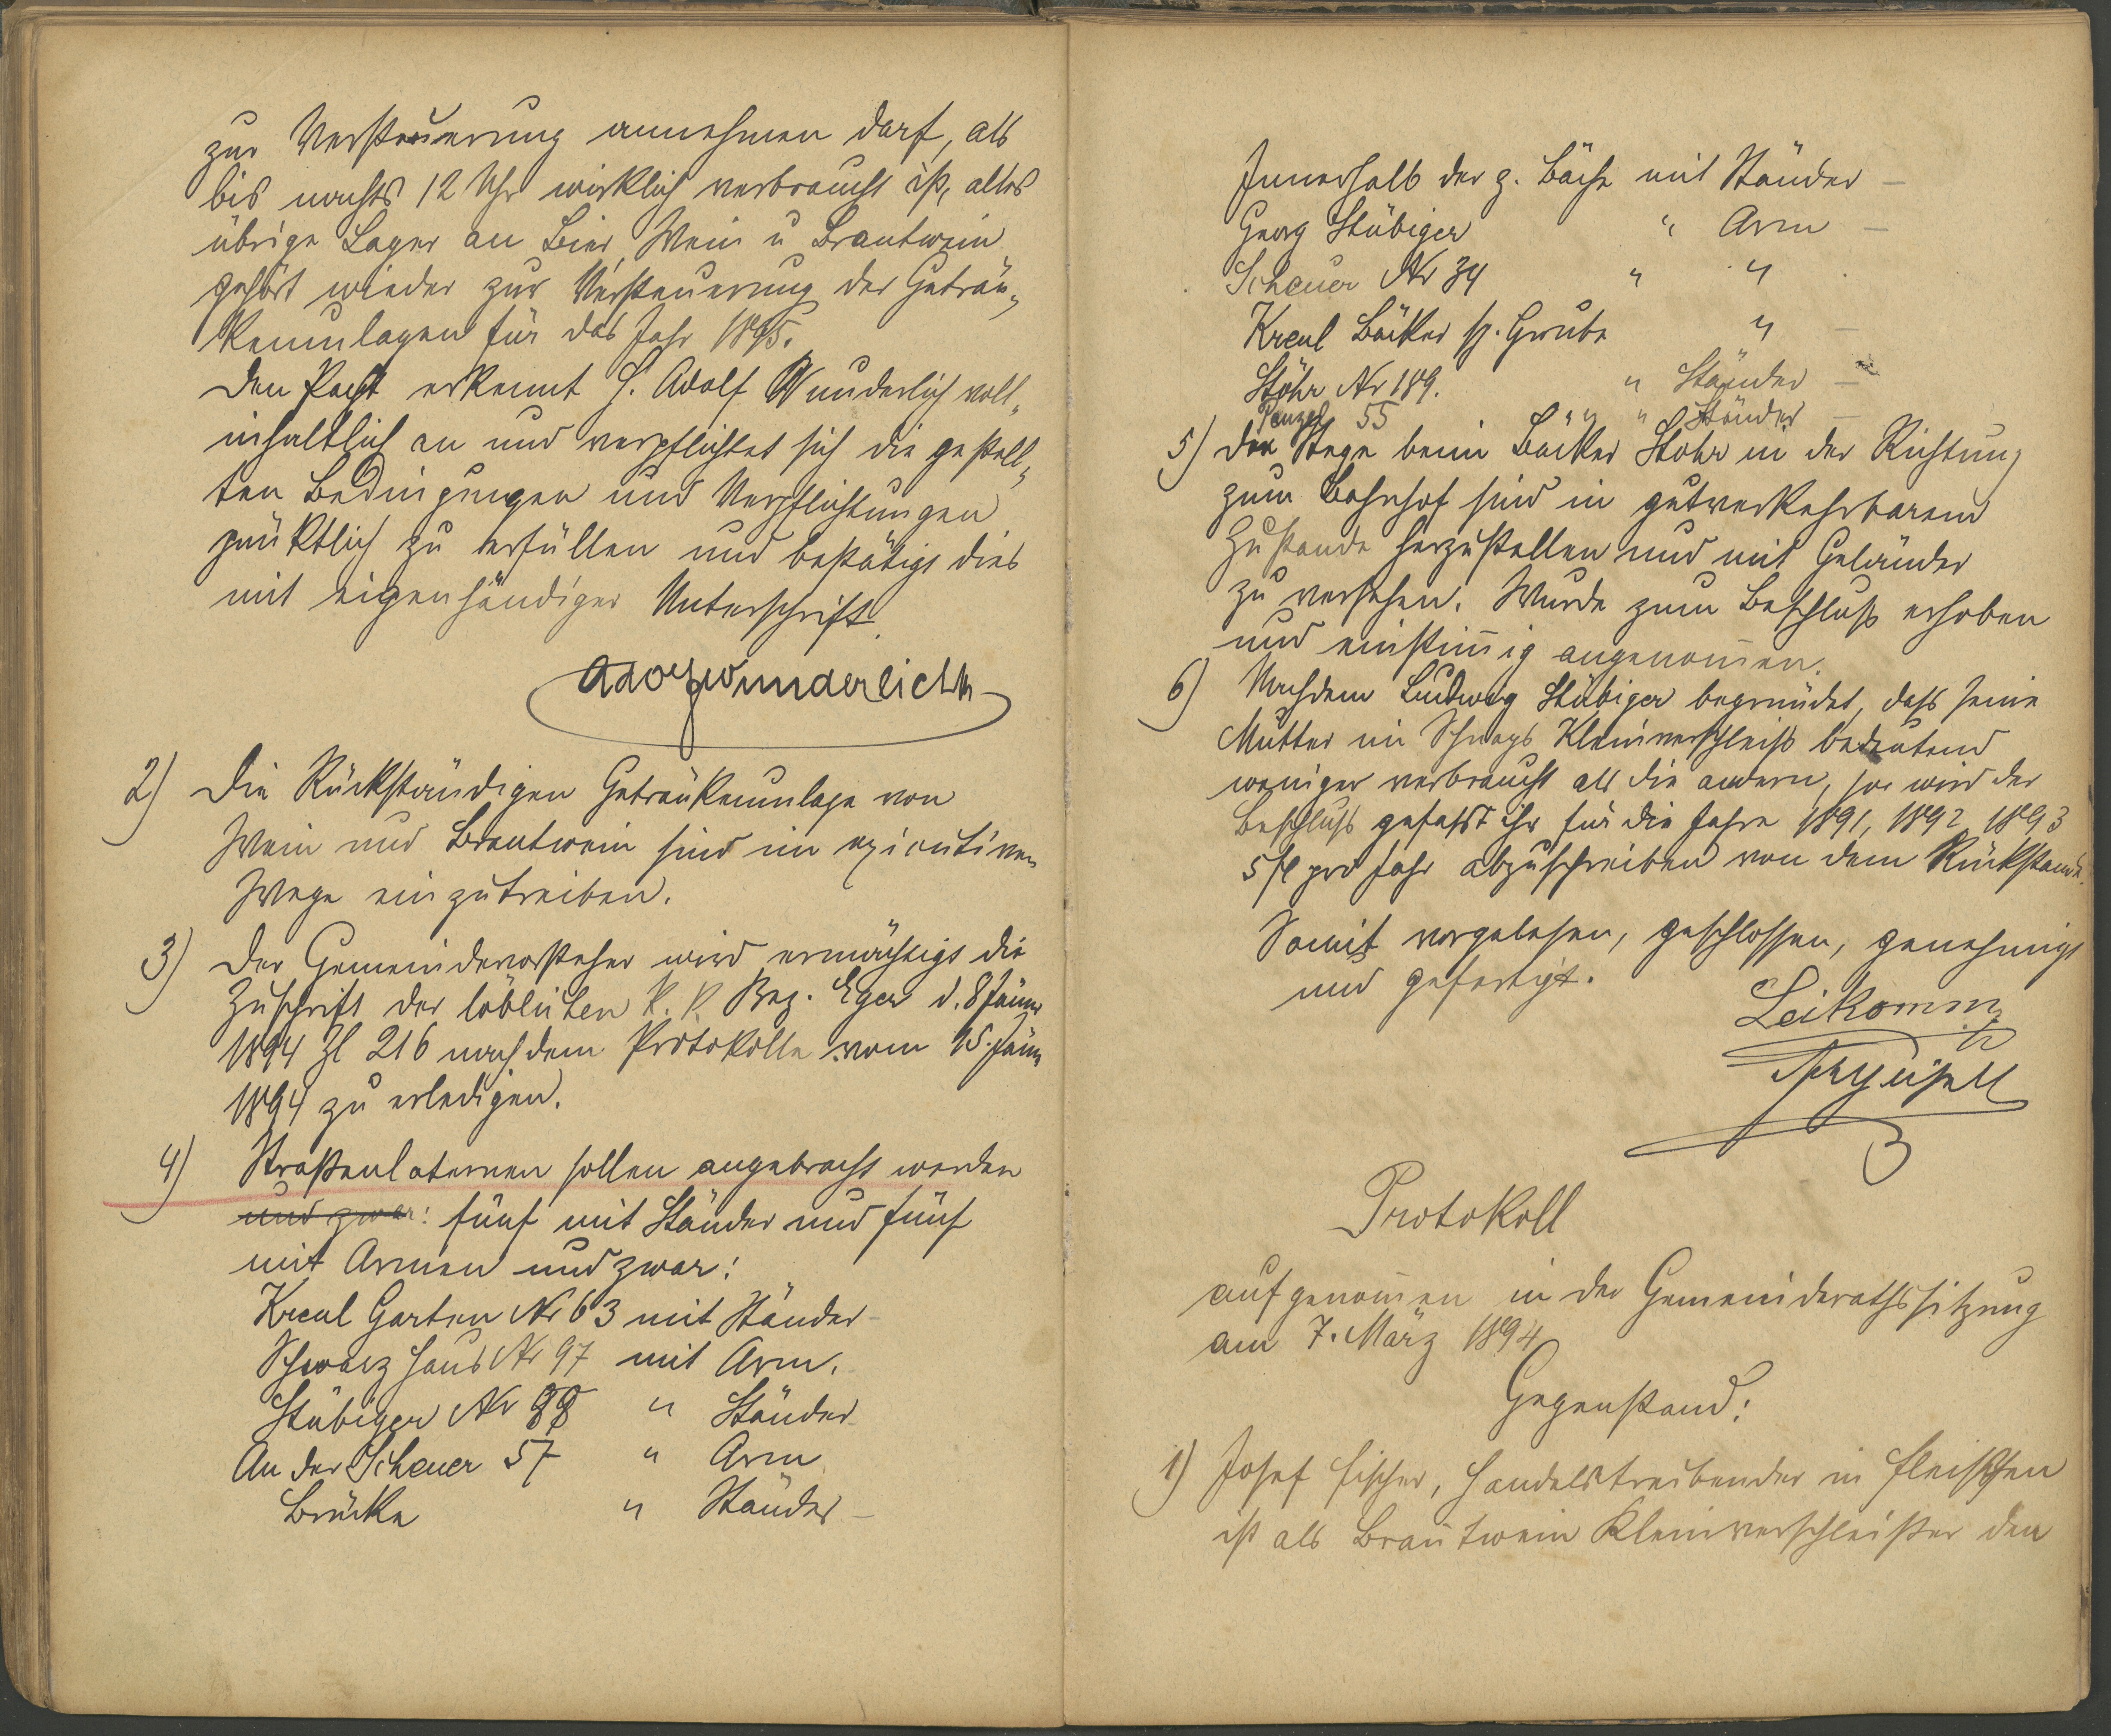 zur Versteuerung annehmen darf, als
bis nachts 12 Uhr wirklich verbraucht ist, alles
übrige Lager an Bier, Wein u Brantwein
gehört wieder zur Versteuerung der Geträn„
kenumlagen für das Jahr 1895.
Den Pacht erkennt H. Adolf Wunderlich voll„
inhaltlich an und verpflichtet sich die gestell„
ten Bedingungen und Verpflichtungen
pünktlich zu erfüllen und bestätigt dies
mit eigenhändiger Unterschrift.
Adolf Wunderlich
2) Die Rückständigen Getränkenumlage von
Wein und Brantwein sind im exicutiven
Wege einzutreiben.
3) Der Gemeindevorsteher wird ermächtigt die
Zuschrift der löblichen k. k. Bez. Eger d. 8 Jänner
1894 Zl 216 nach dem Protokolle vom 15. Jänn
1894 zu erledigen.
4) Straßenlaternen sollen angebracht werden
und zwar: fünf mit Ständer und fünf
mit Armen und zwar:
Kreul Garten Nr 63 mit Ständer -
Schwarz Haus Nr 97 mit Arm.
Stübiger Nr 88 " Ständer
An der Scheuer 57 " Arm
Brücke " Ständer -
Innerhalb der g. Bäche mit Ständer -
Georg Stübiger " Arm -
Scheuer Nr 34 " "
Kreul Bäcker Grube " -
Stöhr Nr 189. " Ständer -
Penzel 55 " " Ständer -
5) Der Stege beim Bäcker Stöhr in der Richtung
zum Bahnhof sind in gutverkehrbarem
Zustande herzustellen und mit Geländer
zu versehen. Wurde zum Beschluß erhoben
und einstim̅ig angenom̅en.
6) Nachdem Ludwig Stübiger begründet, daß seine
Mutter im Schnaps Kleinverschleiß bedeutend
weniger verbraucht als die andern, so wird der
Beschluß gefaßt ihr für die Jahre 1891, 1892, 1893
5 fl pro Jahr abzuschreiben von dem Rückstande.
Somit vorgelesen, geschlossen, genehmigt
und gefertigt.
Protokoll
aufgenom̅en in der Gemeinderathssitzung
am 7. März 1894
Gegenstand:
1) Josef Fischer, Handelstreibender in Fleißen
ist als Bran̅twein Kleinverschleißer den